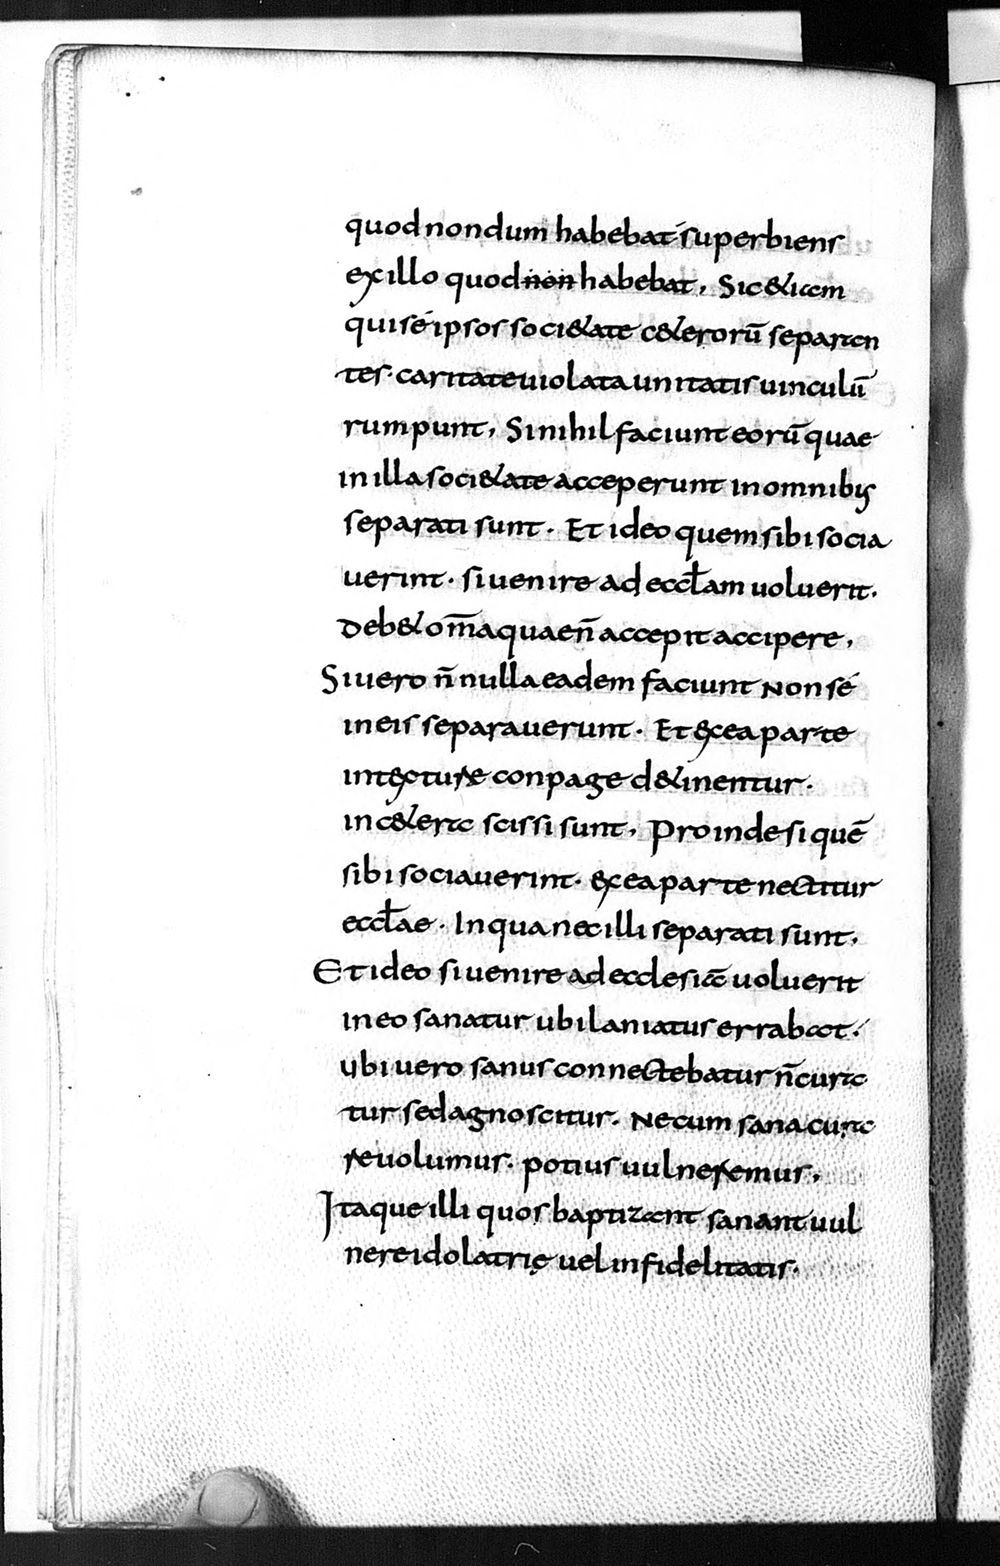 quod nondum habebat superbiens
ex illo quod non habebat, Sic & iam
qui sé ipsos soci&ate c&erorū separan
tes· caritate uiolata unitatis uinculū
rumpunt, Si nihil faciunt eorū quae
in illa soci&ate acceperunt in omnibꝯ
separati sunt· Et ideo quem sibi socia
uerint· si uenire ad eccl̄am uoluerit·
Deb& om̄a quae n̄ accepit accipere,
Si uero n̄nulla eadem faciunt Non sé
in eis separauerunt· Et ex ea parte
in texture conpage d&inentur·
in c&era scissi sunt, Proinde si quē
sibi sociauerint· ex ea parte nectitur
eccl̄ae· In qua nec illi separati sunt,
Et ideo si uenire ad ecclesiā uoluerit
in eo sanatur ubi laniatus errabat·
ubi uero sanus connectebatur n̄ cura
tur sed agnoscitur· Ne cum sana cura
re uolumus· potius uulneremus,
Itaque illi quos baptizant sanant uul
nere idolatrię uel infidelitatis·